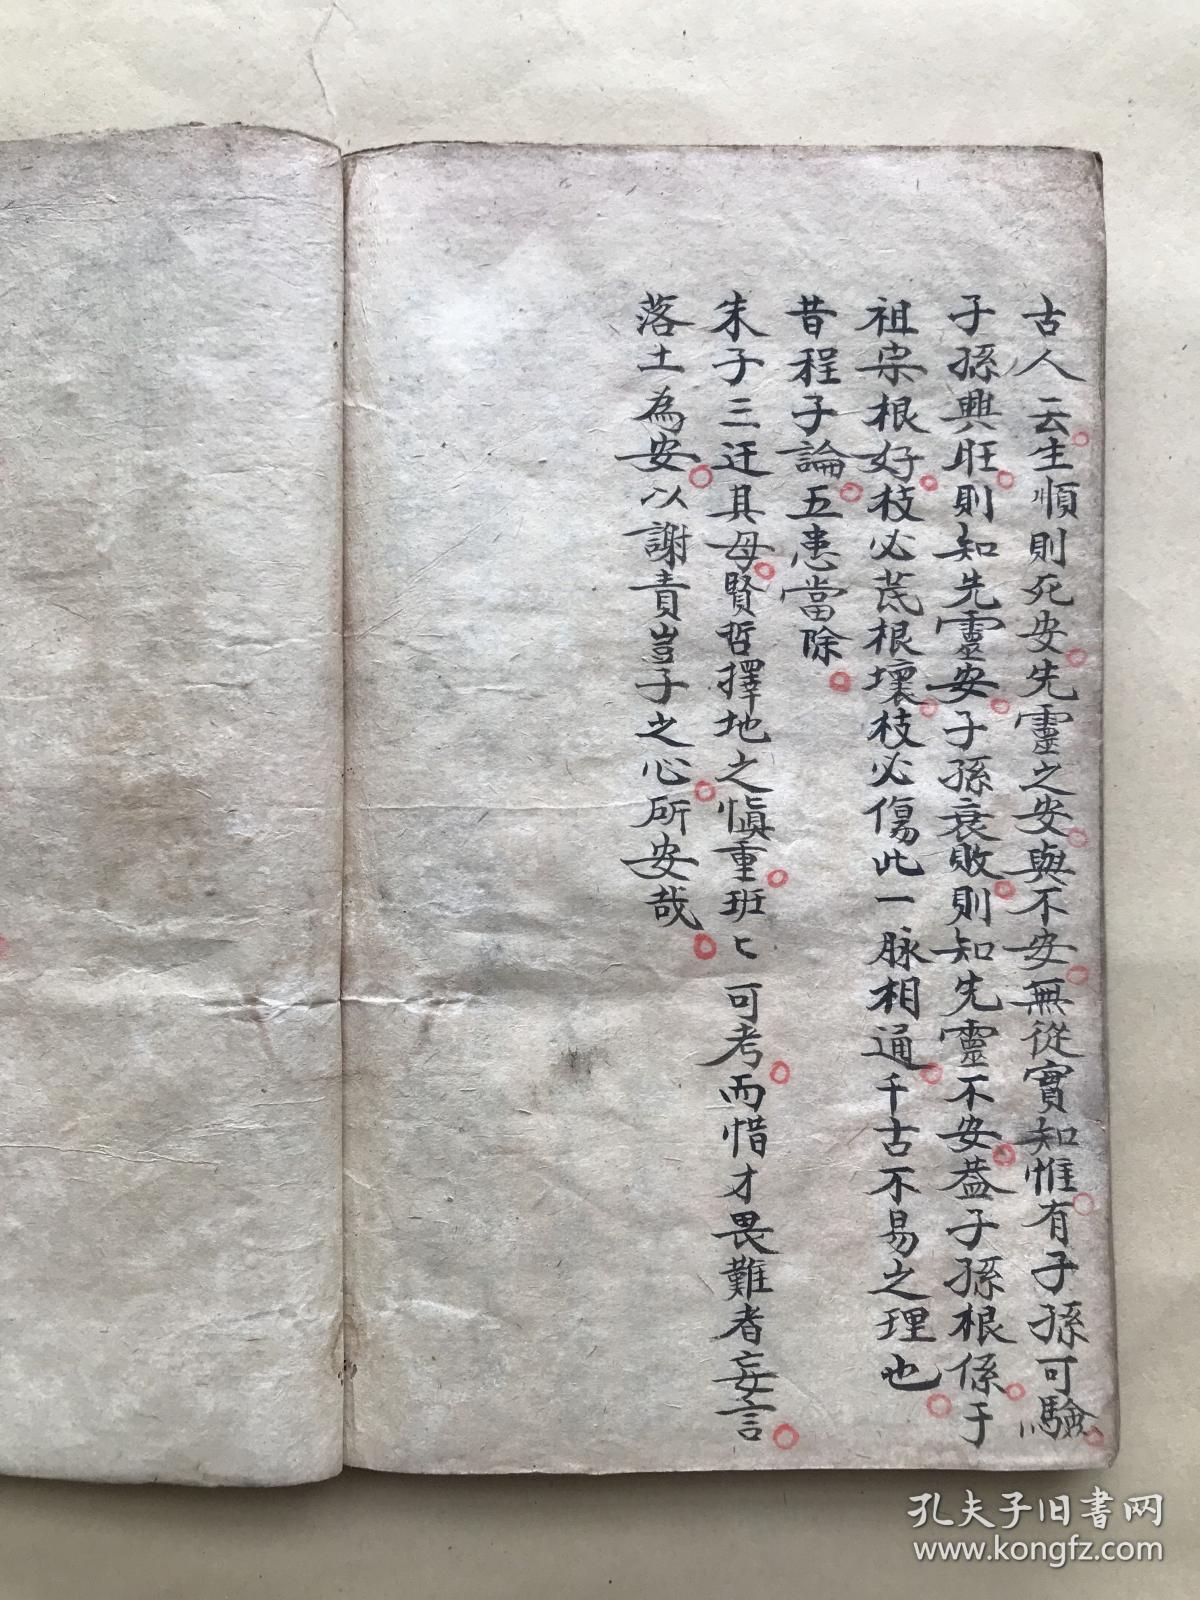 古人云生順則死安先靈之安與不安無從實知惟有子孫可驗
子孫興旺則知先靈安子孫衰敗則知先靈不安蓋子孫根係于
祖宗根好枝必茂根壞枝必傷此一脉相通千古不易之理也
昔程子論五患當除
朱子三迁其母賢哲擇地之慎重班匕可考而惜才畏難者妄言
落土為安以謝責豈子之心所安哉
孔夫子旧書网
www.kongfz.com